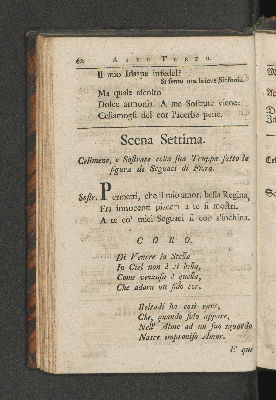 62 ATTO TERZO.
Il mio Idaspe infedel?
Si sente una breve Sinfonia.
Ma quale ascolto
Dolce armonia. A me Sostrate viene:
Celiamogli del cor l'acerbe pene.
Scena Settima.
Celimene, e Sostrate colla sua Truppa sotto la
figura di Seguaci di Flora.
Sostr. Permetti, che il mio amor, bella Regina,
Fra innocenti piaceri a te si mostri,
A te co' miei Seguaci il cor s'inchina.
CORO.
Di Venere la Stella
In Ciel non è sì bella,
Come vezzosa è quella,
Che adora un fido cor.
Beltadi ha così rare,
Che, quando solo appare,
Nell' Alme ad un suo sguardo
Nasce improviso Amor.
E qui